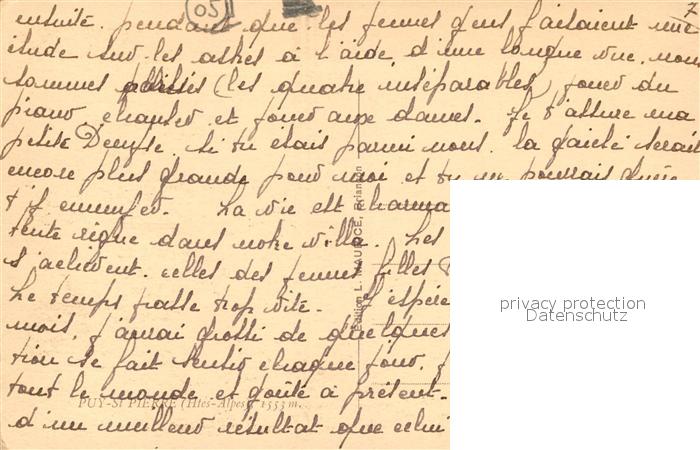 05
7
ensuite. pendant que les jeunes gens faisaient une
étude sur les astres à l'aide d'une longue vue. nous
sommes (les quatre inséparables) jouer du
piano, chanter et jouer aux dames. Je t'assure ma
petite Denyse. si tu étais parmi nous. la gaieté serait
encore plus grande pour moi et tu pourrais guère
t'y ennuyer. La vie est
règne dans notre villa. Les
s'achèvent. celles des jeunes filles
Le temps passe trop vite. J'espère
mois. j'aurai grossi de quelques
tion se fait sentir chaque jour.
tout le monde et goûte à présent.
d'un meilleur résultat que celui
PUY-St PIERRE (Htes-Alpes) 1553 m.
Edition L. MAURICE, Briançon
privacy protection
Datenschutz